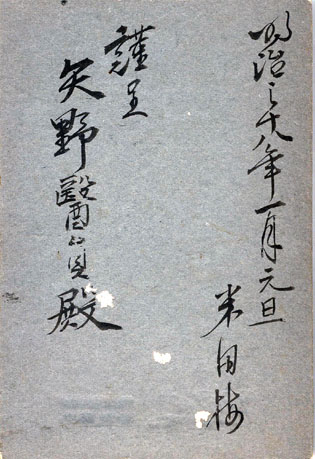 明治三十八年一月元旦
米田
謹呈
矢野醫員殿